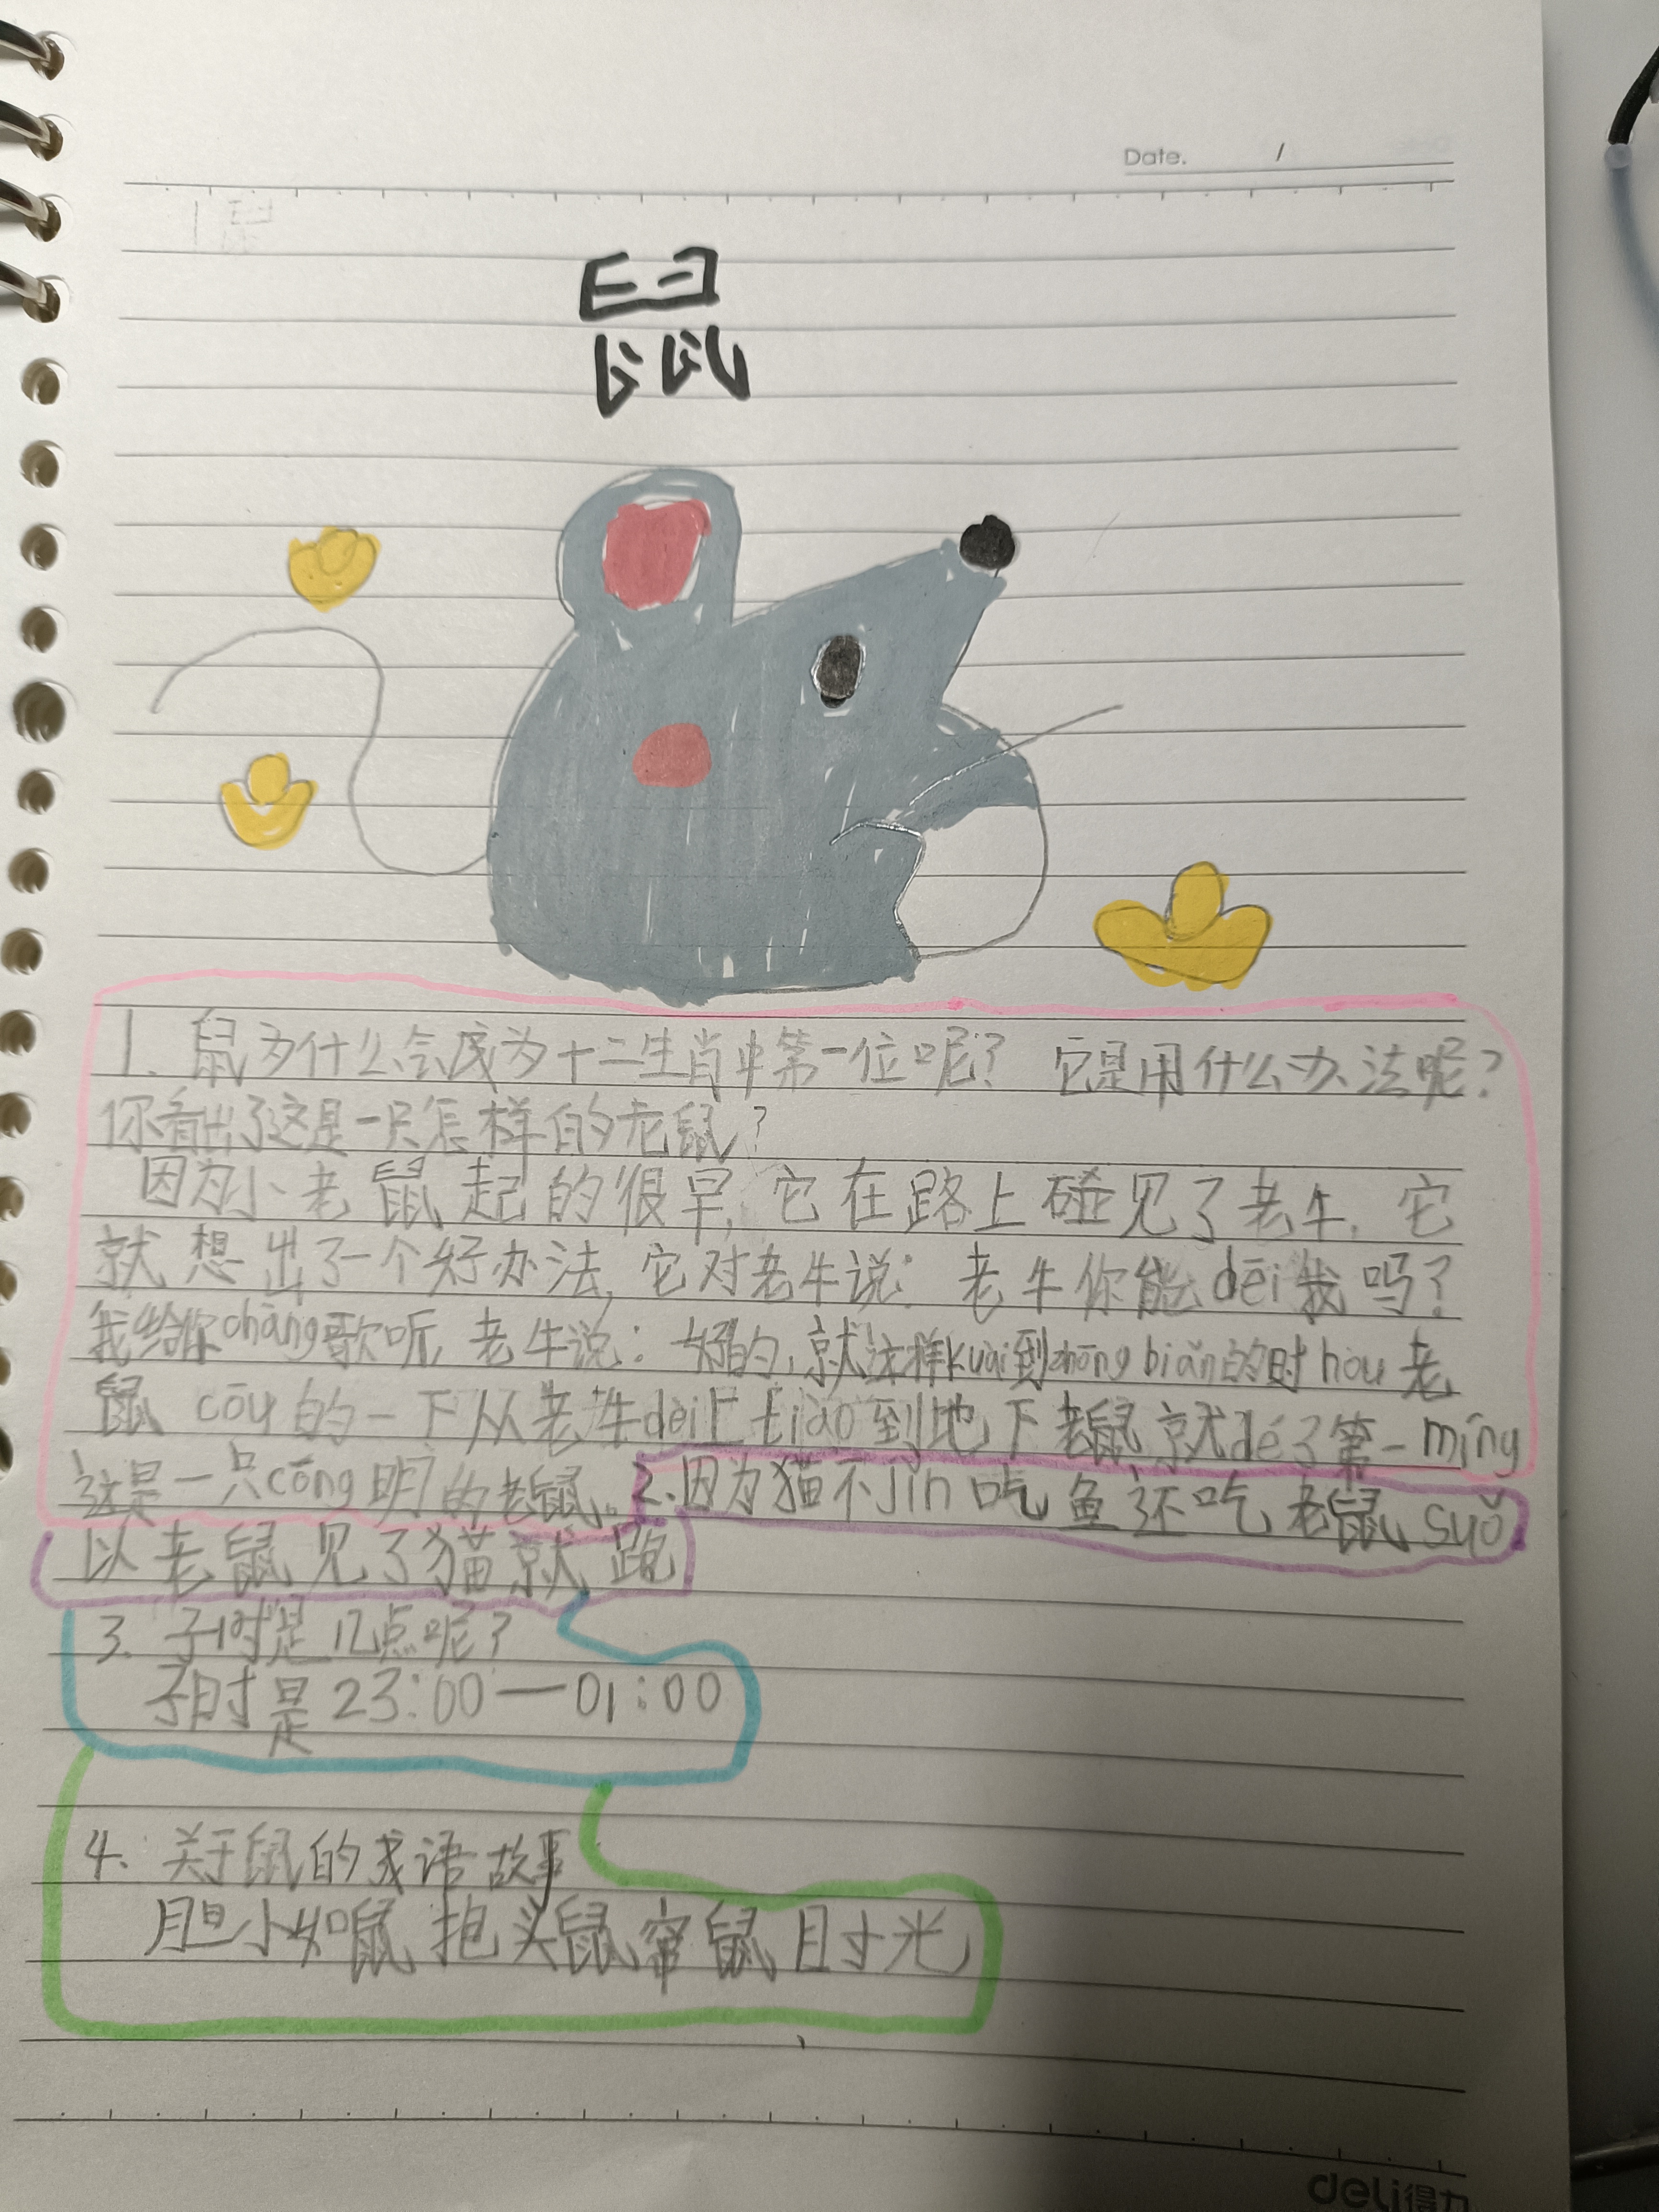 Date. /
鼠
鼠
1. 鼠为什么会成为十二生肖中第一位呢？ 它是用什么办法呢？
你看出了这是一只怎样的老鼠？
因为小老鼠起的很早，它在路上碰见了老牛，它
就想出了一个好办法，它对老牛说：老牛你能dēi我吗？
我给你chàng歌听，老牛说：好的，就这样kuài到zhōng biǎn的时hou老
鼠 cōu的一下从老牛dèi上tiào到地下老鼠就dé了第一míng
这是一只cōng明的老鼠。2.因为猫不jǐn吃鱼还吃老鼠suǒ
以老鼠见了猫就跑
3. 子时是几点呢？
子时是23:00—01:00
4. 关于鼠的成语故事
胆小如鼠 抱头鼠窜 鼠目寸光
deli得力